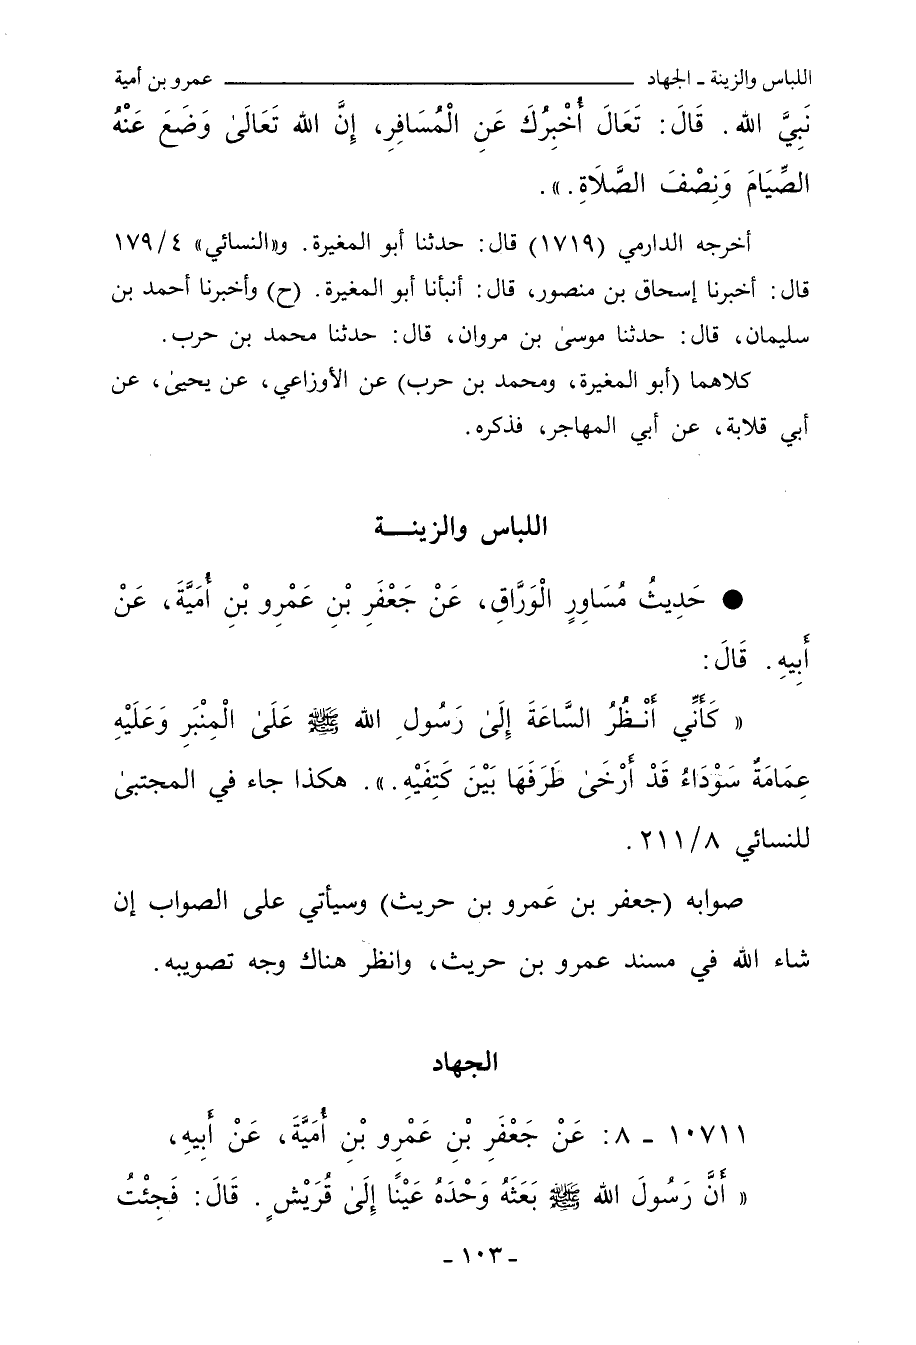 اللباس والزينة ـ الجهاد ــــــــــــــــــــ عمرو بن أمية
نَبِيَّ الله. قَالَ: تَعَالَ أُخْبِرُكَ عَنِ الْمُسَافِرِ، إِنَّ الله تَعَالَىٰ وَضَعَ عَنْهُ
الصِّيَامَ وَنِصْفَ الصَّلَاةِ.».
أخرجه الدارمي (١٧١٩) قال: حدثنا أبو المغيرة. و«النسائي» ٤/١٧٩
قال: أخبرنا إسحاق بن منصور، قال: أنبأنا أبو المغيرة. (ح) وأخبرنا أحمد بن
سليمان، قال: حدثنا موسىٰ بن مروان، قال: حدثنا محمد بن حرب.
كلاهما (أبو المغيرة، ومحمد بن حرب) عن الأوزاعي، عن يحيىٰ، عن
أبي قلابة، عن أبي المهاجر، فذكره.
اللباس والزينـــة
● حَدِيثُ مُسَاوِرٍ الْوَرَّاقِ، عَنْ جَعْفَرِ بْنِ عَمْرِو بْنِ أُمَيَّةَ، عَنْ
أَبِيهِ. قَالَ:
« كَأَنِّي أَنْـظُرُ السَّاعَةَ إِلَىٰ رَسُولِ الله ﷺ عَلَىٰ الْمِنْبَرِ وَعَلَيْهِ
عِمَامَةٌ سَوْدَاءُ قَدْ أَرْخَىٰ طَرَفَهَا بَيْنَ كَتِفَيْهِ.». هكذا جاء في المجتبىٰ
للنسائي ٨/٢١١.
صوابه (جعفر بن عَمرو بن حريث) وسيأتي على الصواب إن
شاء الله في مسند عمرو بن حريث، وانظر هناك وجه تصويبه.
الجهاد
١٠٧١١ ـ ٨: عَنْ جَعْفَرِ بْنِ عَمْرِو بْنِ أُمَيَّةَ، عَنْ أَبِيهِ،
« أَنَّ رَسُولَ الله ﷺ بَعَثَهُ وَحْدَهُ عَيْنًا إِلَىٰ قُرَيْشٍ. قَالَ: فَجِئْتُ
ـ ١٠٣ ـ